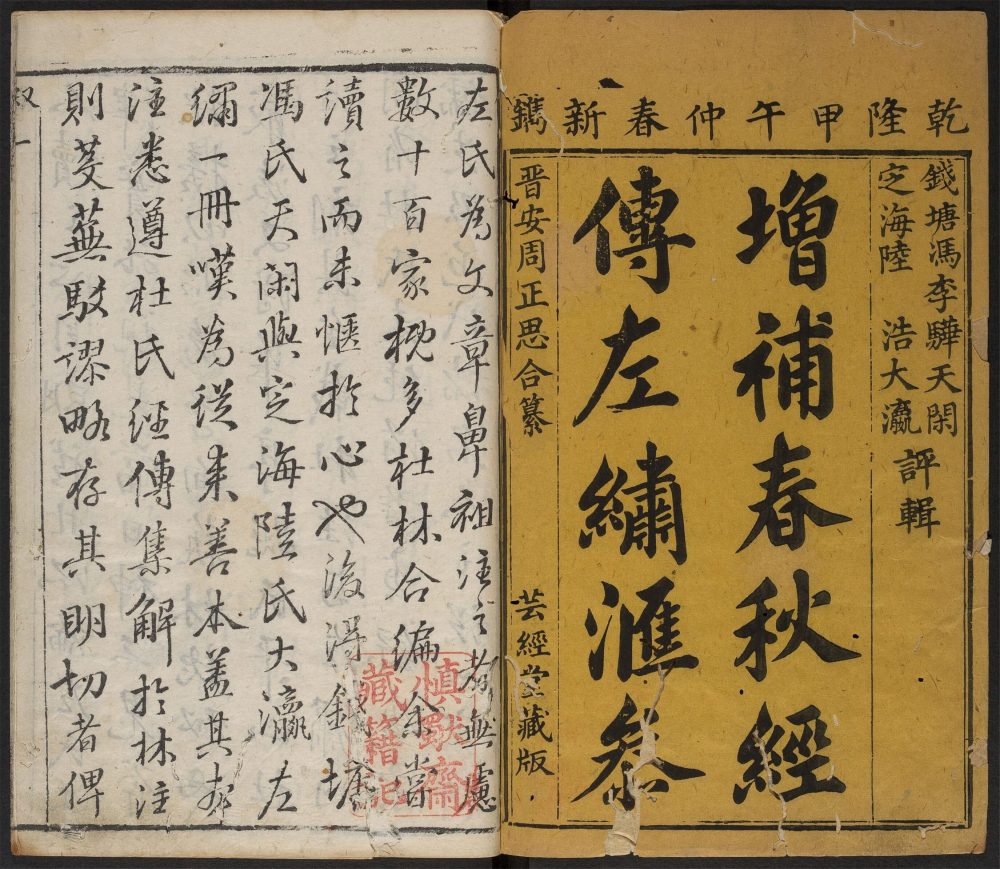 乾隆甲午仲春新鐫
錢塘馮李驊天閑
定海陸浩大瀛評輯
增補春秋經
傳左繡滙參
晋安周正思合纂
芸經堂藏版
左氏為文章鼻祖注之者無慮
數十百家槐多杜林合編余嘗
讀之而未愜扵心也後得錢塘
馮氏天閑與定海陸氏大瀛左
繡一冊嘆為從來善本盖其
注悉遵杜氏經傳集解扵林注
則芟蕪駁謬略存其明切者俾
慎獸齋
藏籍記
叙
一